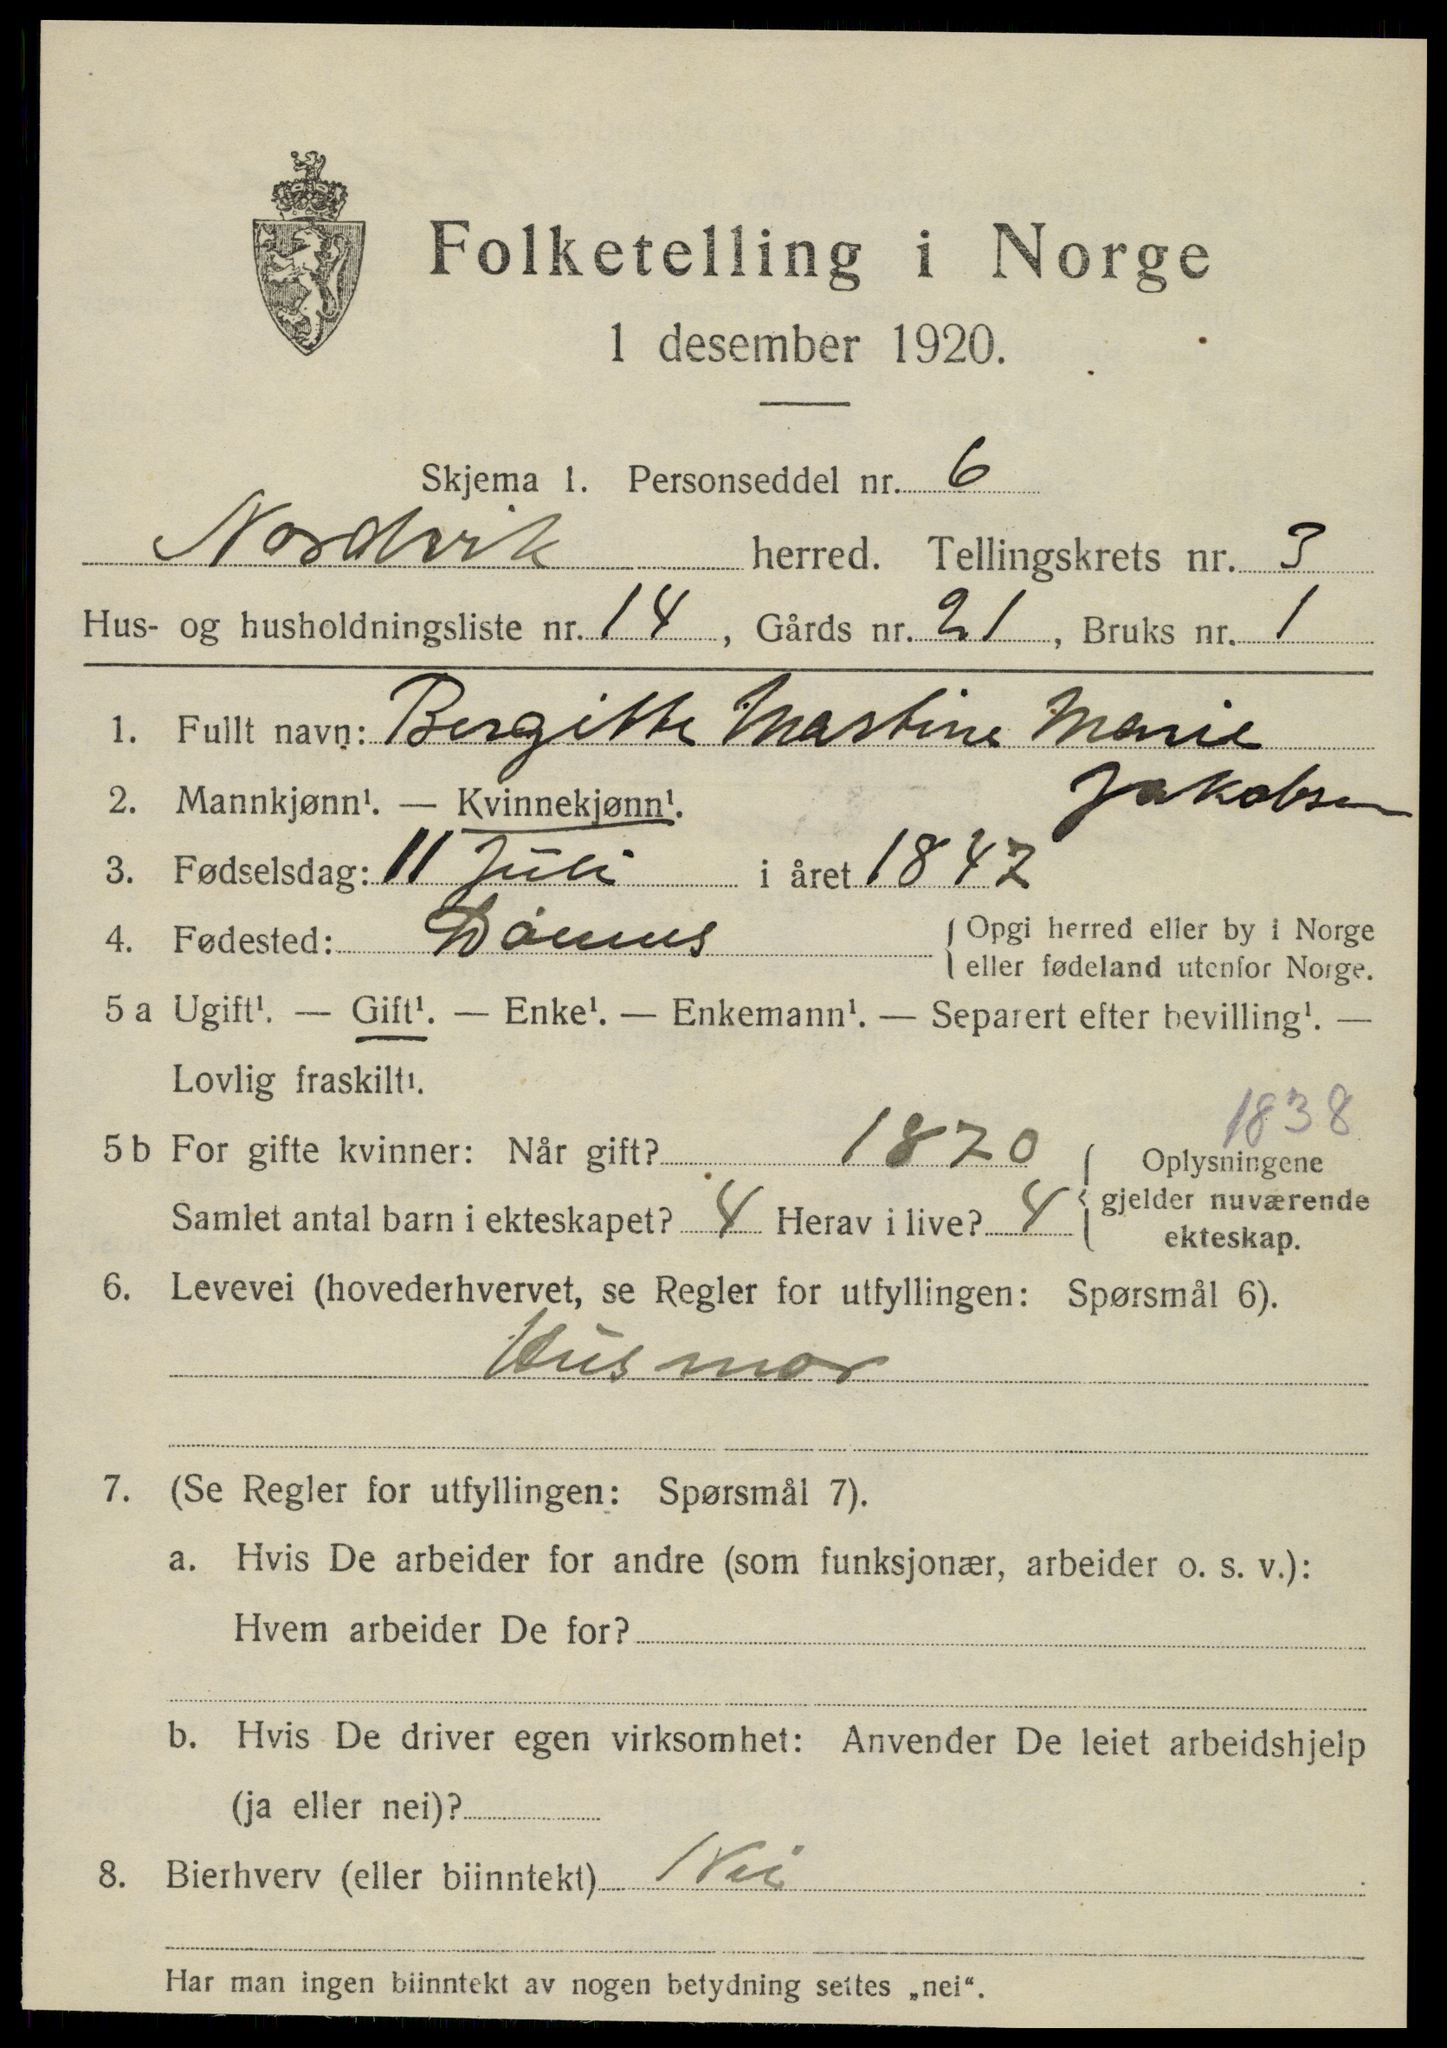 Folketelling i Norge
1 desember 1920.
Skjema 1. Personseddel nr. 6
Nordvik herred. Tellingskrets nr. 3
Hus- og husholdningsliste nr. 14, Gårds nr. 21, Bruks nr. 1
1. Fullt navn: Bergitte Martine Marie
Jakobsen
2. Mannkjønn¹. — Kvinnekjønn¹.
3. Fødselsdag: 11 Juli i året 1847
4. Fødested: Dønnes { Opgi herred eller by i Norge
eller fødeland utenfor Norge.
5 a Ugift¹. — Gift¹. — Enke¹. — Enkemann¹. — Separert efter bevilling¹. —
Lovlig fraskilt¹.
1838
5 b For gifte kvinner: Når gift? 1870
Samlet antal barn i ekteskapet? 4 Herav i live? 4
{ Oplysningene
gjelder nuværende
ekteskap.
6. Levevei (hovederhvervet, se Regler for utfyllingen: Spørsmål 6).
Husmor
7. (Se Regler for utfyllingen: Spørsmål 7).
a. Hvis De arbeider for andre (som funksjonær, arbeider o. s. v.):
Hvem arbeider De for?
b. Hvis De driver egen virksomhet: Anvender De leiet arbeidshjelp
(ja eller nei)?
8. Bierhverv (eller biinntekt) Nei
Har man ingen biinntekt av nogen betydning settes „nei“.